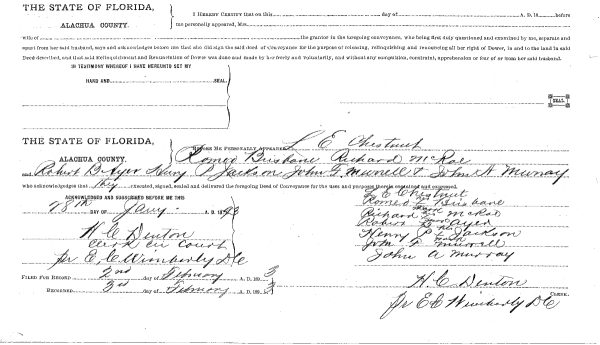 THE STATE OF FLORIDA,
ALACHUA COUNTY.
I HEREBY CERTIFY that on this day of A. D. 18 before
me personally appeared, Mrs.
wife of the grantor in the foregoing conveyance, who being first duly questioned and examined by me, separate and
apart from her said husband, says and acknowledges before me that she did sign the said deed of conveyance for the purpose of releasing, relinquishing and renouncing all her right of Dower, in and to the land in said
Deed described, and that said Relinquishment and Renunciation of Dower was done and made by her freely and voluntarily, and without any compulsion, constraint, apprehension or fear of or from her said husband.
IN TESTIMONY WHEREOF I HAVE HEREUNTO SET MY
HAND AND SEAL
SEAL
THE STATE OF FLORIDA,
ALACHUA COUNTY.
BEFORE ME PERSONALLY APPEARED L E Chestnut
Romeo Brisbane Richard McRae
and Robert B Ayer Henry P Jackson John F Murrell & John A Murray
who acknowledges that they executed, signed, sealed and delivered the foregoing Deed of Conveyance for the uses and purposes therein contained and expressed.
ACKNOWLEDGED AND SUBSCRIBED BEFORE ME THIS
28th DAY OF Jany A. D. 1893
H C Denton
Clerk Cir Court
pr E C Wimberly DC
L E Chestnut
Romeo Brisbane
Richard McRae
Robert B Ayer
Henry P Jackson
John F Murrell
John A Murray
FILED FOR RECORD 2nd day of February A. D. 189 3
RECORDED 3rd day of February A. D. 189 3
H. C. Denton
CLERK.
pr E C Wimberly DC